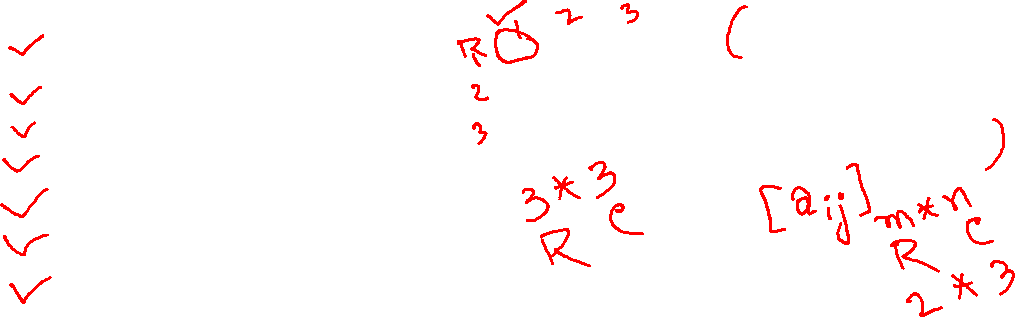 R 2 3 (
2
3
)
3*3
R C
[aij]m*n
R C
2*3